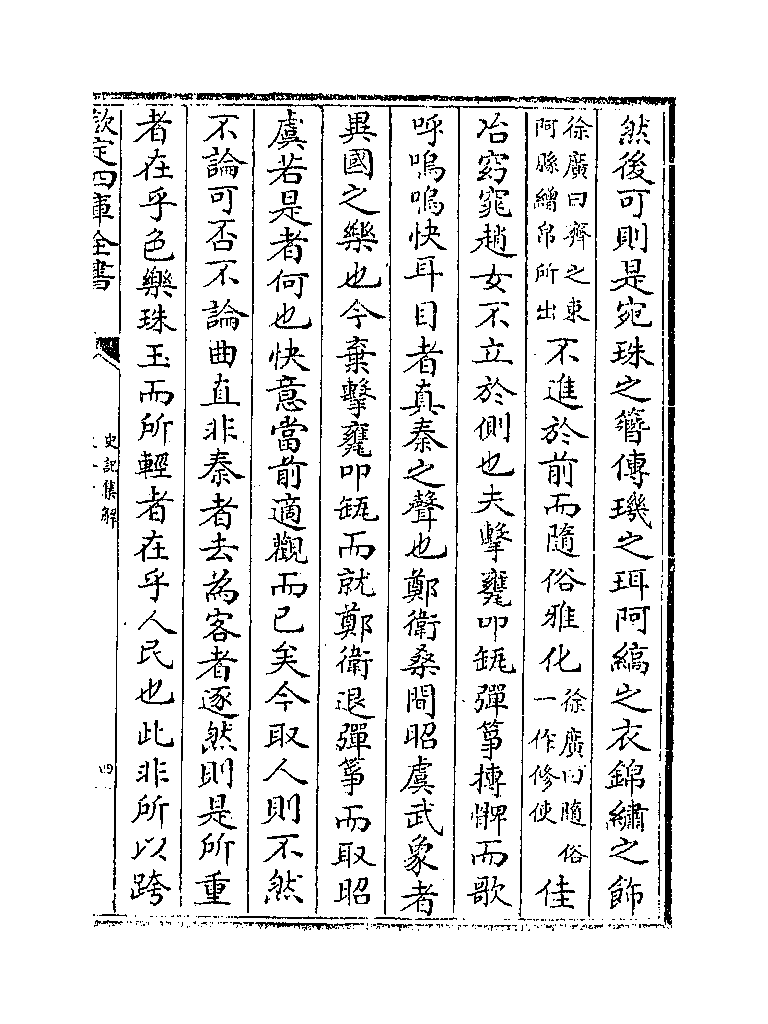 然後可則是宛珠之簪傅璣之珥阿縞之衣錦繡之飾
徐廣曰齊之東
阿縣繒帛所出
不進於前而隨俗雅化
徐廣曰隨俗
一作修使
佳
冶窈窕趙女不立於側也夫擊甕叩缻彈筝搏髀而歌
呼嗚嗚快耳目者真秦之聲也鄭衛桑間昭虞武象者
異國之樂也今棄擊甕叩缻而就鄭衛退彈筝而取昭
虞若是者何也快意當前適觀而已矣今取人則不然
不論可否不論曲直非秦者去為客者逐然則是所重
者在乎色樂珠玉而所輕者在乎人民也此非所以跨
欽定四庫全書
史記集解
四